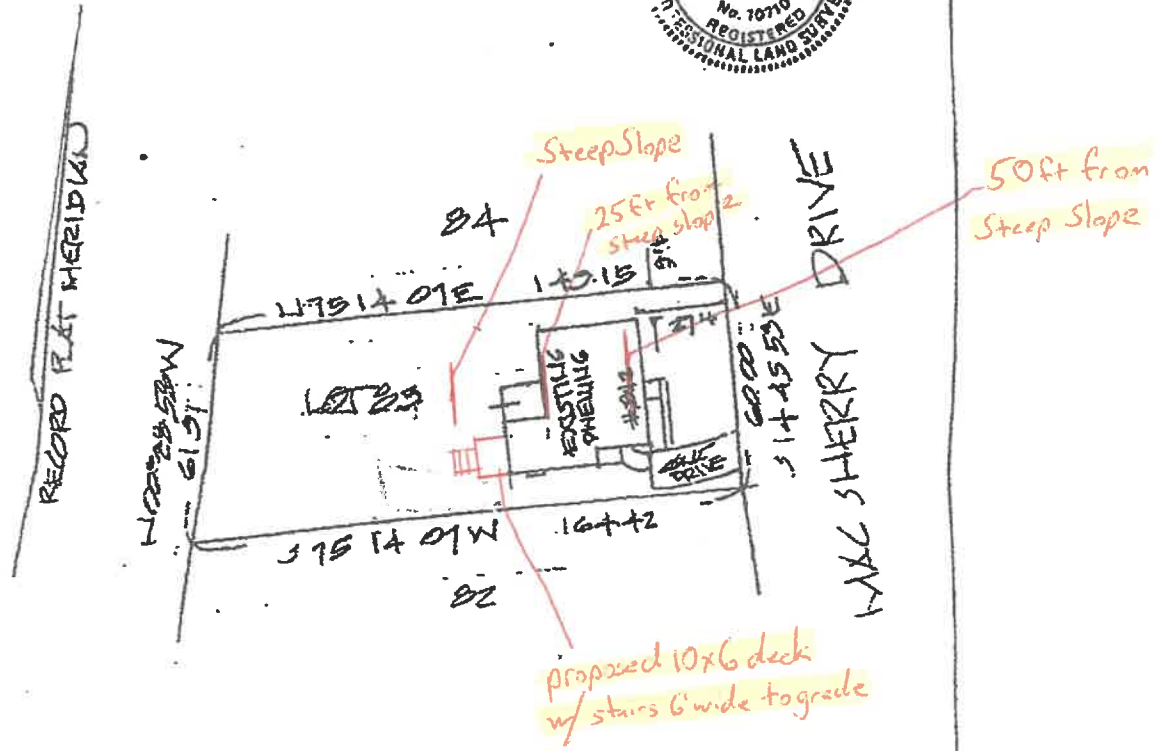 No. 10710
REGISTERED
PROFESSIONAL LAND SURVE
RECORD PLAT MERIDIAN
Steep Slope
84
25ft from
steep slope
50ft from
Steep Slope
N 75 14 07 E
LOT 83
EXISTING
DWELLING
DRIVE
60.00
S 14 45 53 E
MAC SHERRY DRIVE
61.31
S 75 14 07 W
164.42
82
proposed 10x6 deck
w/ stairs 6' wide to grade